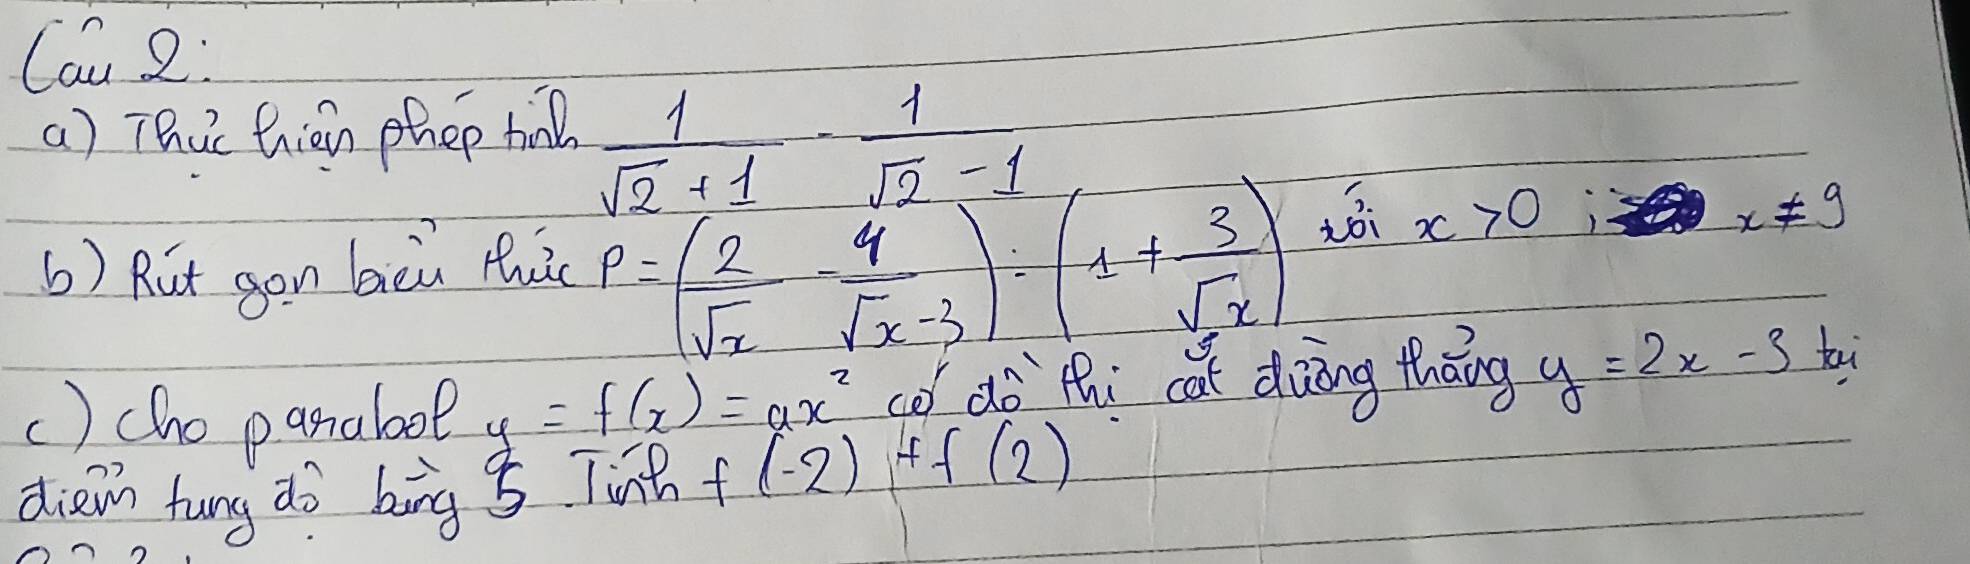 Câu 2:
a) Thực hiện phép tính 1/(√2 + 1) - 1/(√2 - 1)
b) Rút gọn biểu thức P = (2/√x - 4/(√x - 3)) : (1 + 3/√x) với x > 0 ; x ≠ 9
c) Cho parabol y = f(x) = ax² có đồ thị cắt đường thẳng y = 2x - 3 tại
điểm tung độ bằng 5. Tính f(-2) + f(2)